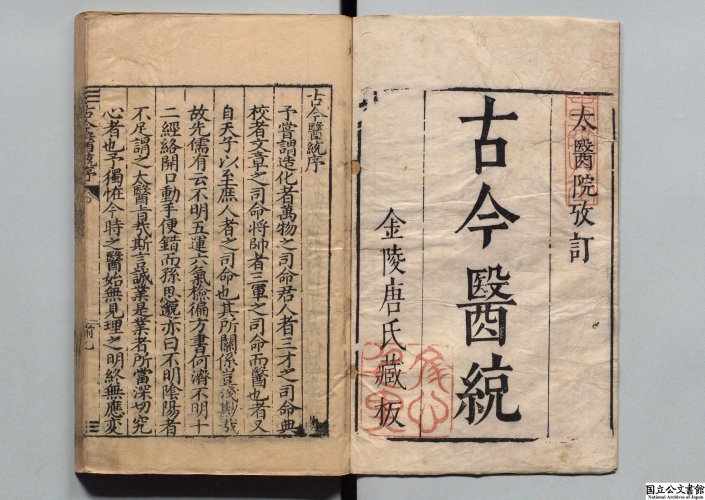 太醫院攷訂
古今醫統
金陵唐氏藏板
古今醫統序
予嘗謂造化者萬物之司命君人者三才之司命典
校者文章之司命將帥者三軍之司命而醫也者又
自天子以至庶人者之司命也其所關係豈淺尠哉
故先儒有云不明五運六氣檢徧方書何濟不明十
二經絡開口動手便錯而孫思邈亦曰不明陰陽者
不足謂之太醫旨哉斯言誠業是業者所當深切究
心者也予獨恠今時之醫始無見理之明終無應変
古今醫統序
国立公文書館
National Archives of Japan